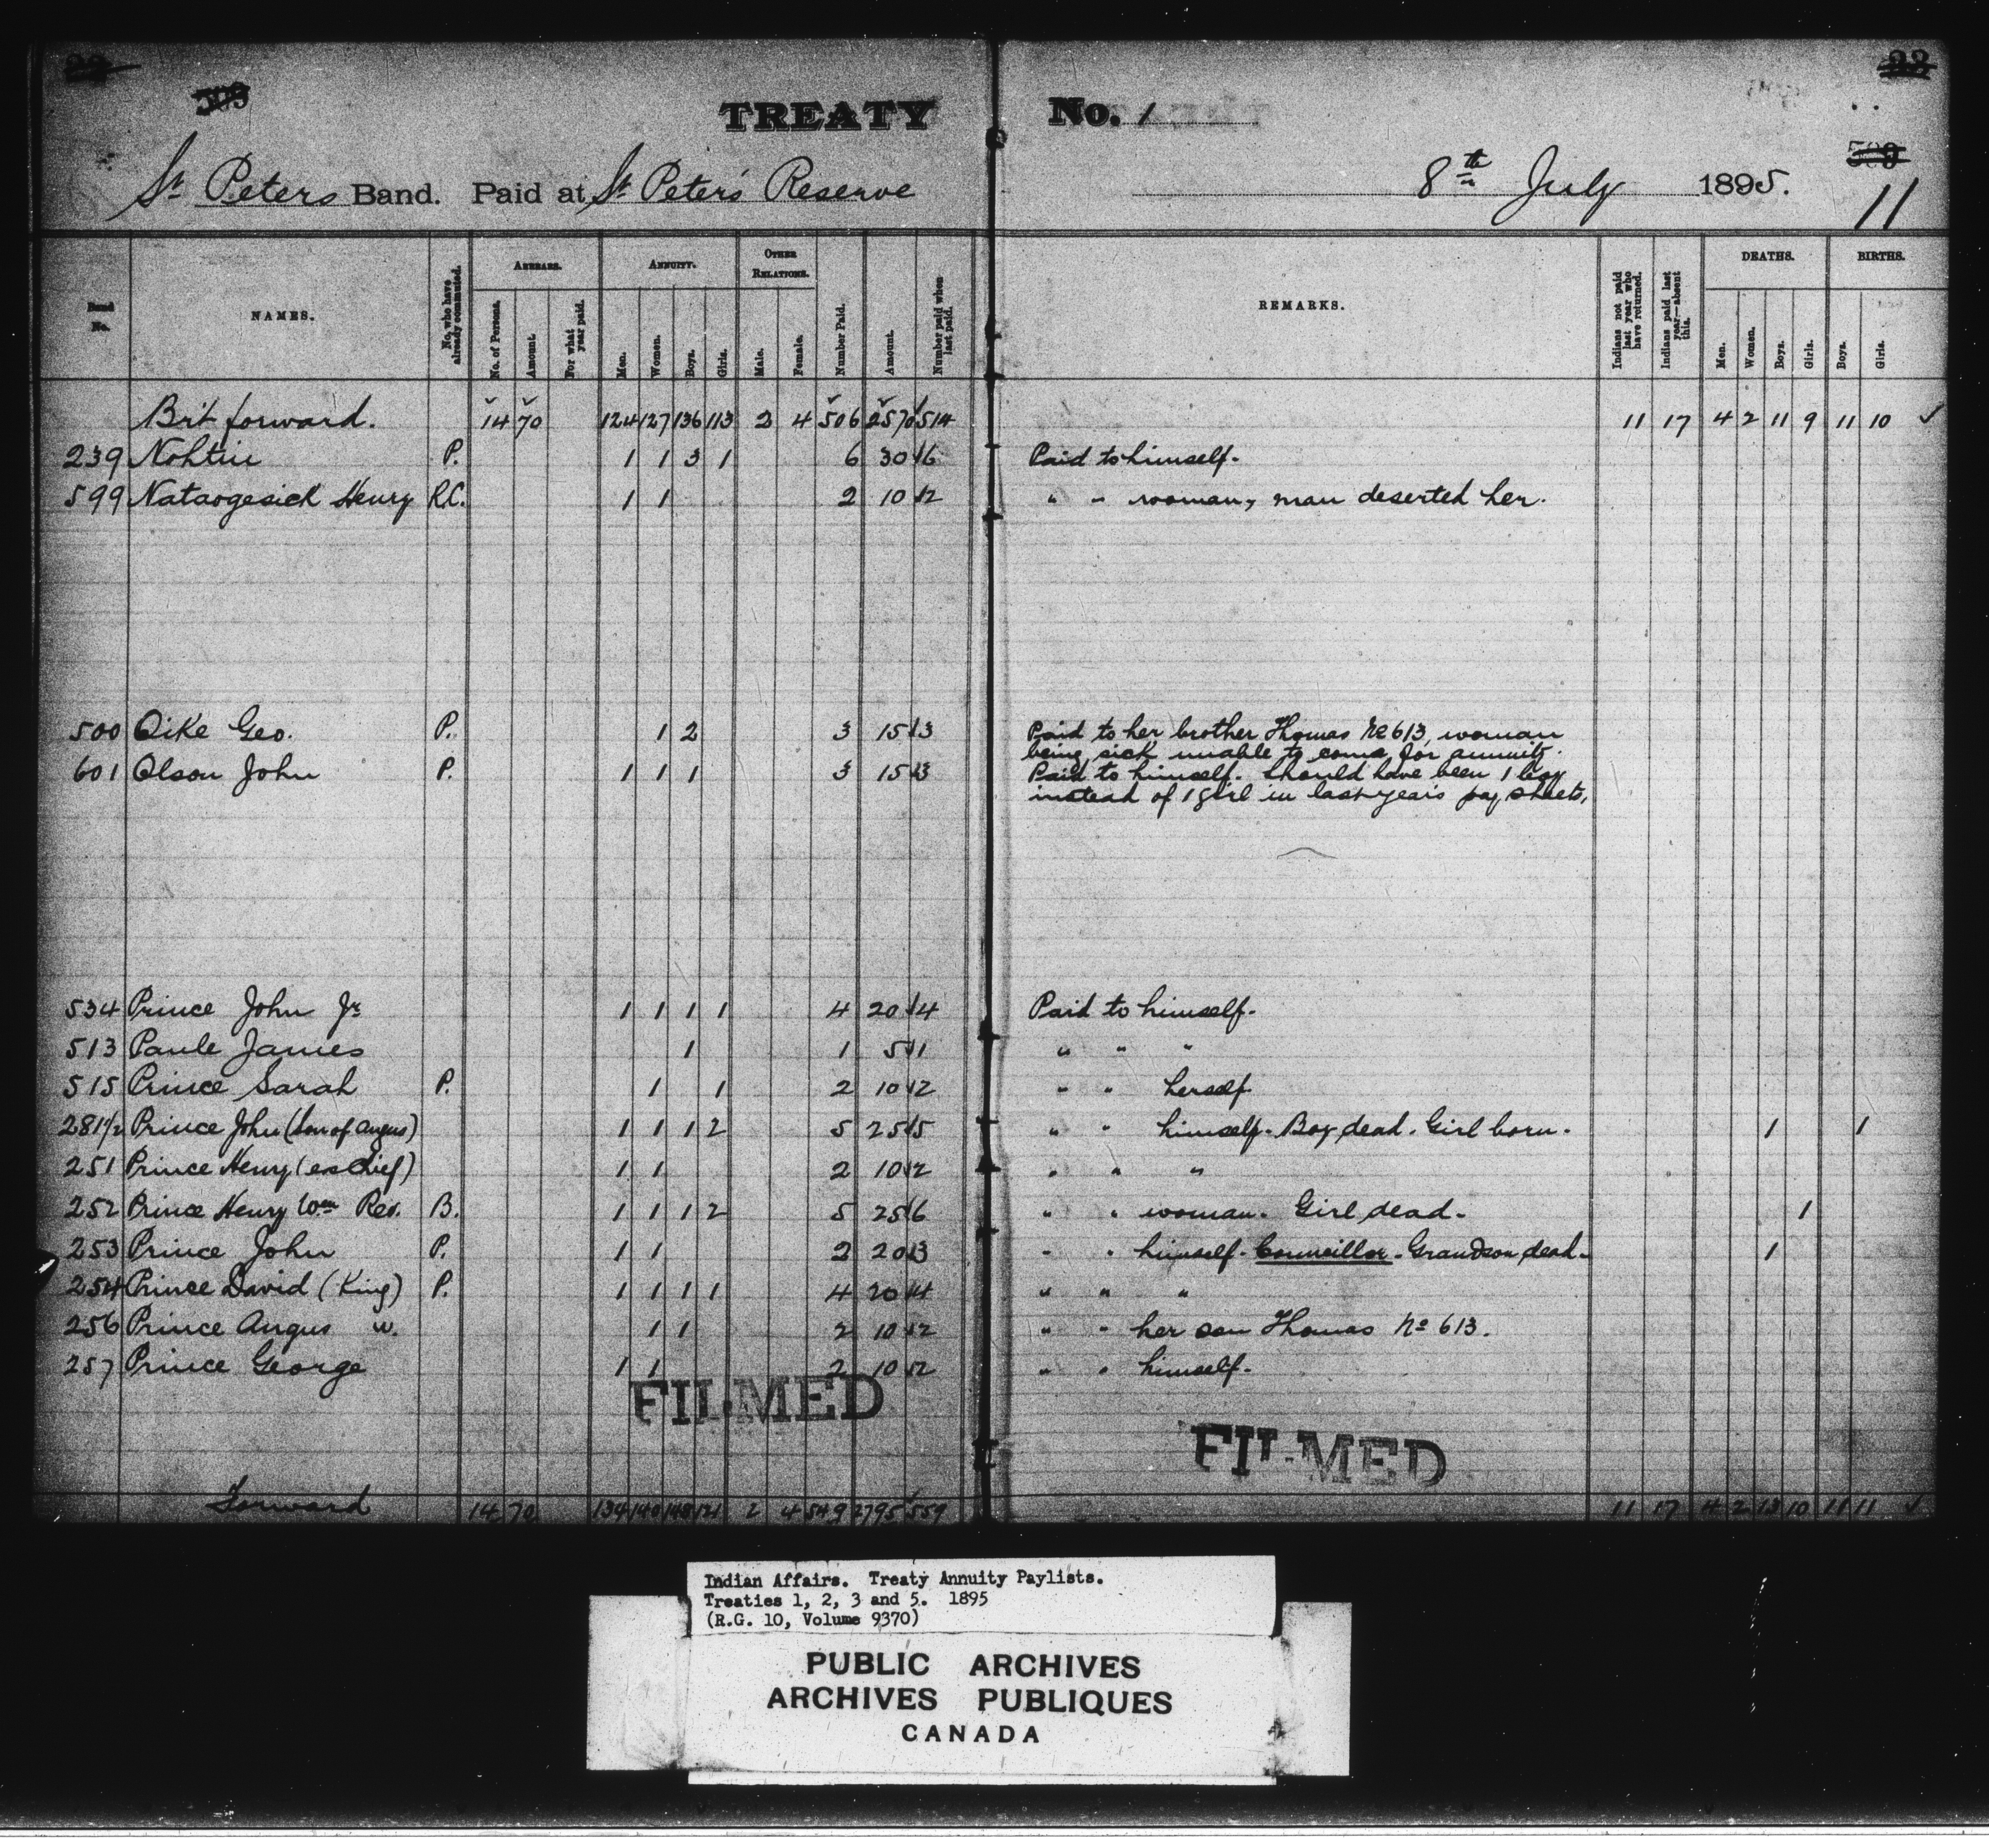 TREATY No. 1
St Peters Band. Paid at St Peter's Reserve 8th July 1895.
11
Band No.
NAMES.
No. who have already commuted.
ARREARS.
No. of Persons.
Amount.
For what year paid.
ANNUITY.
Men.
Women.
Boys.
Girls.
OTHER RELATIONS.
Male.
Female.
Number Paid.
Amount.
Number paid when last paid.
REMARKS.
Indians not paid last year who have returned.
Indians paid last year—absent this.
DEATHS.
Men.
Women.
Boys.
Girls.
BIRTHS.
Boys.
Girls.
Brt forward. 14 70 124 127 136 113 2 4 506 2570 514 11 17 4 2 11 9 11 10 ✓
239 Nohtin P. 1 1 3 1 6 30 6 Paid to himself.
599 Nataogesick Henry R.C. 1 1 2 10 2 " " woman, man deserted her.
500 Oike Geo. P. 1 2 3 15 3 Paid to her brother Thomas No 613, woman
being sick unable to come for annuity.
601 Olson John P. 1 1 1 3 15 3 Paid to himself. Should have been 1 boy
instead of 1 girl in last year's pay sheets.
534 Prince John Jr 1 1 1 1 4 20 4 Paid to himself.
513 Paule James 1 1 5 1 " " "
515 Prince Sarah P. 1 1 2 10 2 " " herself
281½ Prince John (Son of Angus) 1 1 1 2 5 25 5 " " himself. Boy dead. Girl born. 1 1
251 Prince Henry (ex Chief) 1 1 2 10 2 " " "
252 Prince Henry Wm Rev. B. 1 1 1 2 5 25 6 " " woman. Girl dead. 1
253 Prince John P. 1 1 2 20 3 " " himself. Councillor. Grandson dead. 1
254 Prince David (King) P. 1 1 1 1 4 20 4 " " "
256 Prince Angus w. 1 1 2 10 2 " " her son Thomas No 613.
257 Prince George 1 1 2 10 2 " " himself.
FILMED
FILMED
Forward 14 70 134 140 148 121 2 4 549 2795 559 11 17 4 2 13 10 11 11 ✓
Indian Affairs. Treaty Annuity Paylists.
Treaties 1, 2, 3 and 5. 1895
(R.G. 10, Volume 9370)
PUBLIC ARCHIVES
ARCHIVES PUBLIQUES
CANADA